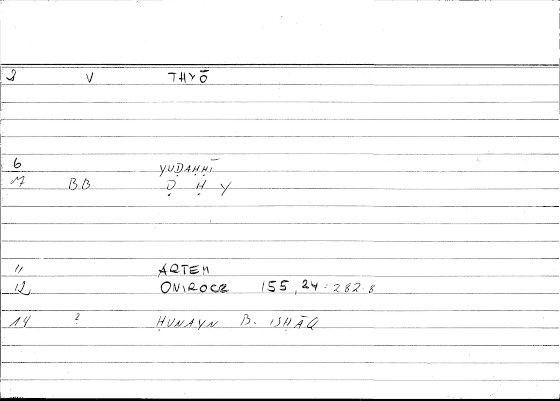 2 V THYŌ
6 YUḌAḤḤĪ
7 BB Ḍ Ḥ Y
11 ARTEM
12 ONIROCR 155,24 = 282.8
14 ? ḤUNAYN B. ISḤĀQ